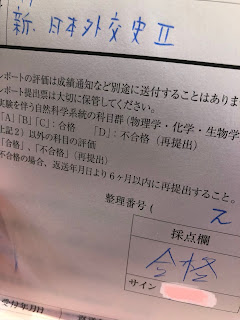 新、日本外交史Ⅱ
レポートの評価は成績通知など別途に送付することはありま
レポート提出票は大切に保管してください。
実験を伴う自然科学系統の科目群(物理学・化学・生物学
「A」「B」「C」：合格　「D」：不合格（再提出）
上記2）以外の科目の評価
「合格」、「不合格」（再提出）
不合格の場合、返送年月日より6ヶ月以内に再提出すること。
整理番号（
採点欄
合格
サイン
受付年月日